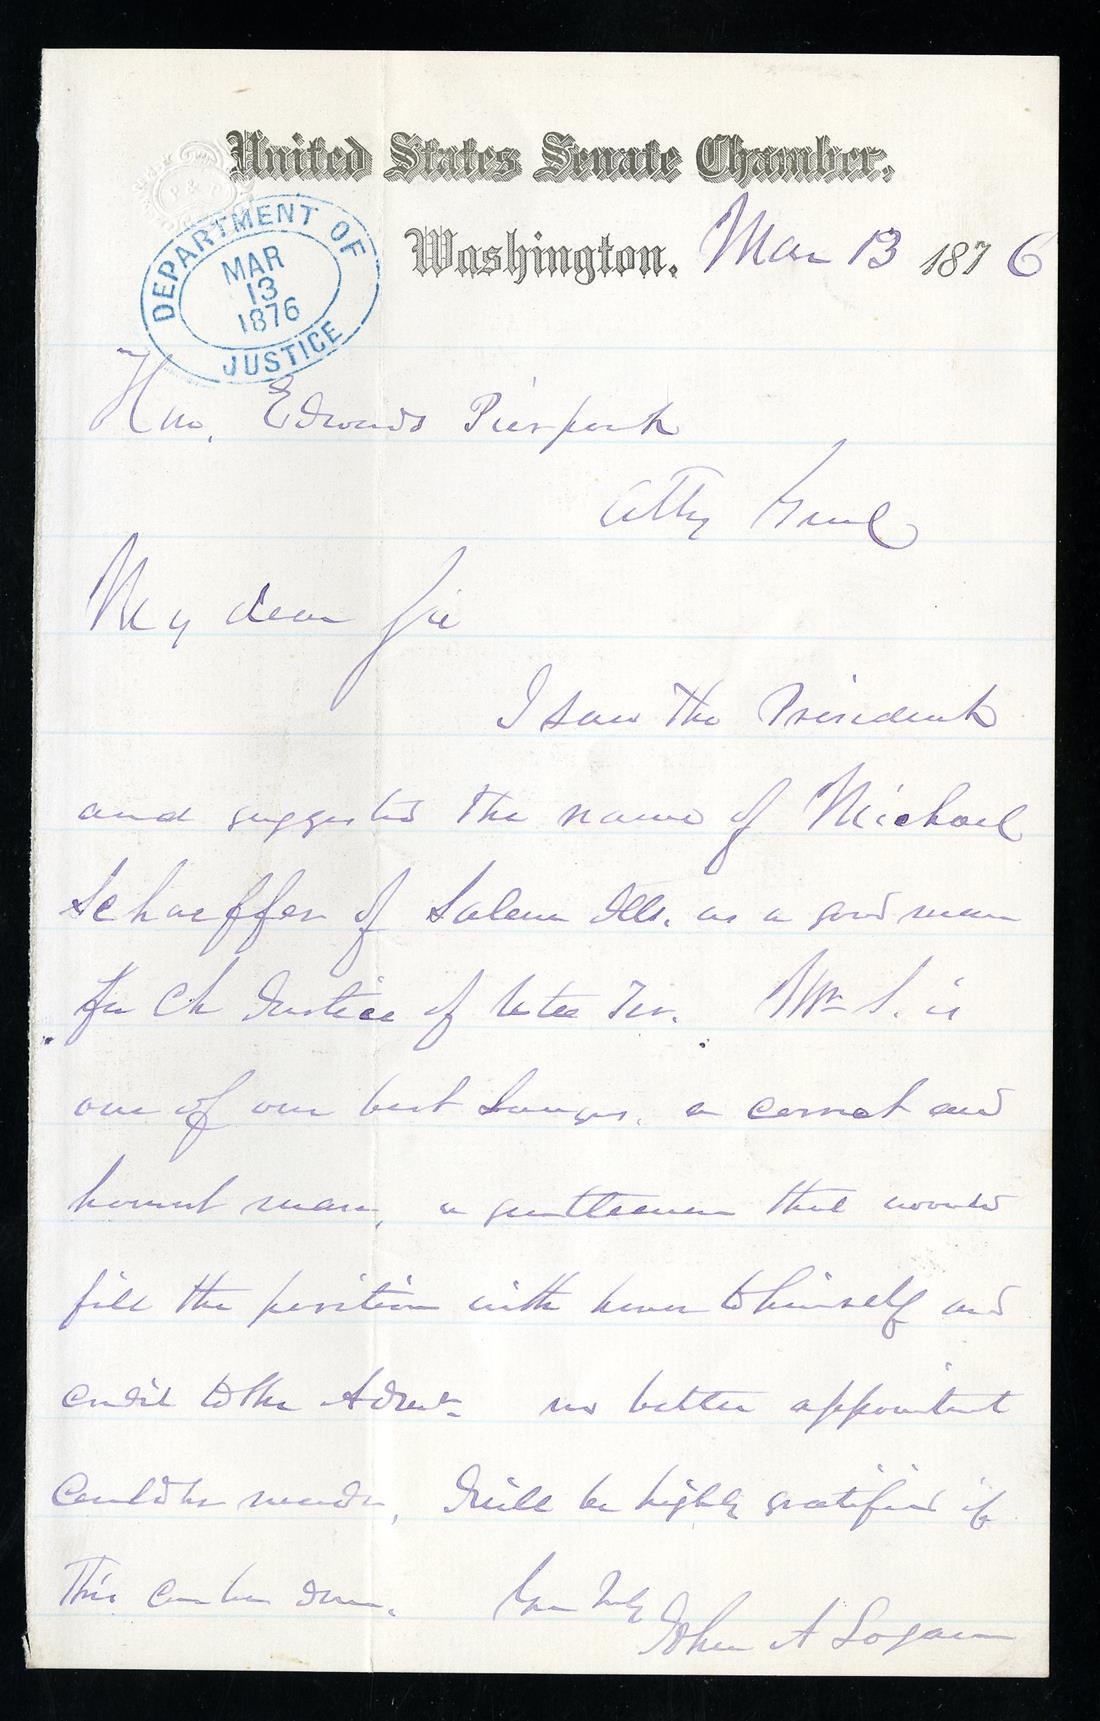 United States Senate Chamber.
P & P
DEPARTMENT OF
MAR
13
1876
JUSTICE
Washington. Mar 13 1876
Hon. Edwards Pierpont
Atty Genl
My dear Sir
I saw the President
and suggested the name of Michael
Schaeffer of Salem Ills. as a good man
for Ch Justice of Utah Ter. Mr S. is
one of our best Lawyers, a correct and
honest man, a gentleman that would
fill the position with honor to himself and
credit to the Admt- no better appointmt
could be made, I will be highly gratified if
This can be done. Yours Try
John A Logan